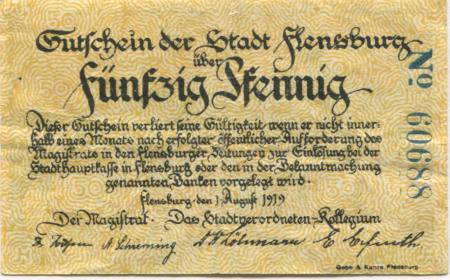 Gutschein der Stadt Flensburg
über
Fünfzig Pfennig
Dieser Gutschein verliert seine Gültigkeit wenn er nicht inner-
halb eines Monats nach erfolgter öffentlicher Aufforderung des
Magistrats in den Flensburger Zeitungen zur Einlösung bei der
Stadthauptkasse in Flensburg oder den in der Bekanntmachung
genannten Banken vorgelegt wird
Flensburg den 1 August 1919
Der Magistrat. Das Stadtverordneten-Kollegium
No 88609